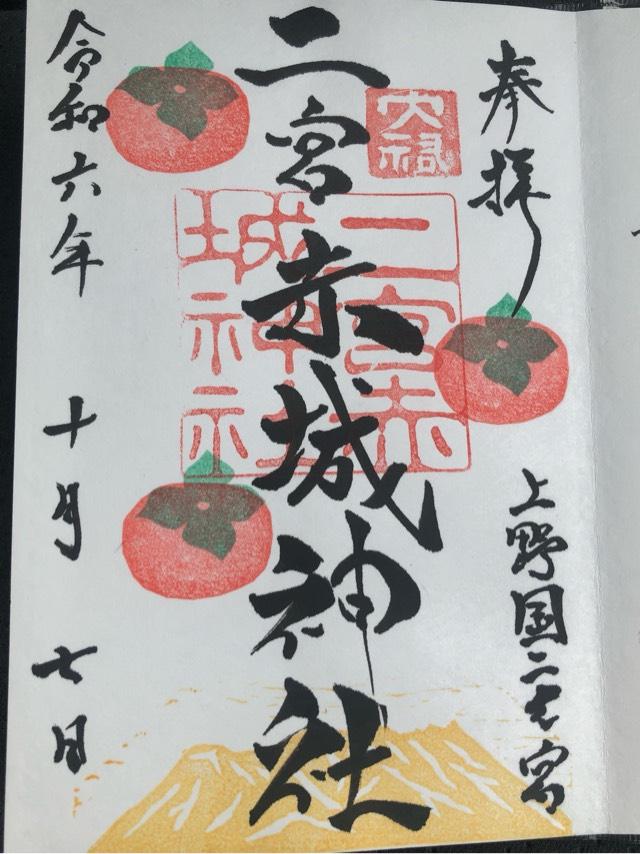 奉拝
上野国二之宮
大祓
二宮赤城神社
二宮赤城神社
令和六年
十月
七日